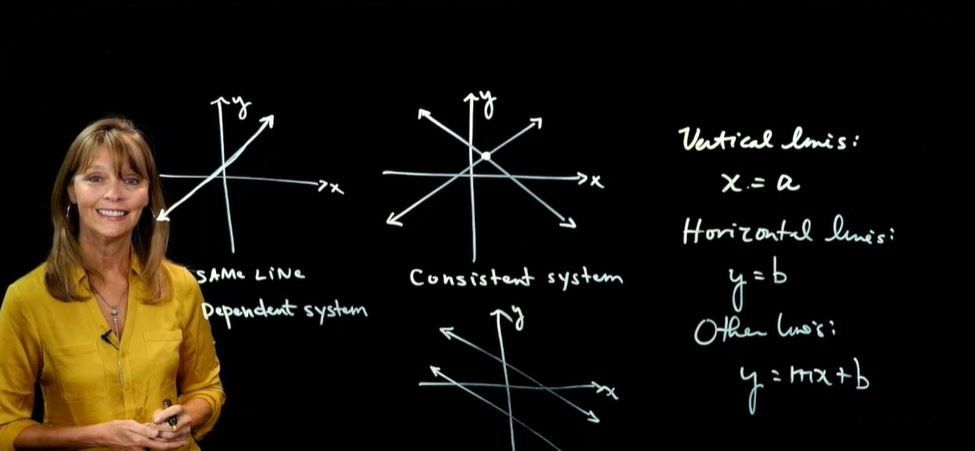 y
x
SAME LINE
Dependent system
y
x
Consistent system
y
x
Vertical lines:
x = a
Horizontal lines:
y = b
Other lines:
y = mx + b